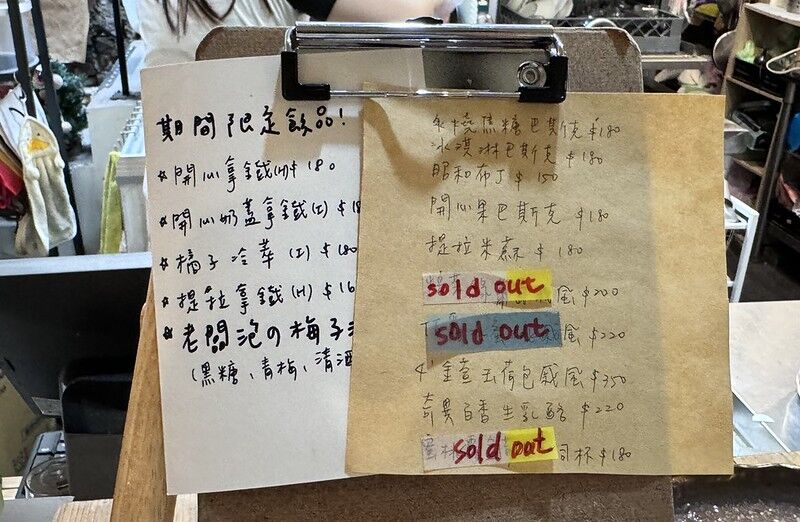 期間限定飲品!
*開心拿鐵(H)$180
*開心奶蓋拿鐵(I) $18
*橘子冷萃 (I) $180
*提拉拿鐵(H) $16
*老闆泡の梅子
(黑糖、青梅、清酒
焦糖巴斯克 $180
冰淇淋巴斯克 $180
昭和布丁 $150
開心果巴斯克 $180
提拉米蘇 $180
sold out 風 $200
sold out 風 $220
4" 金萱玉荷包戚風 $350
奇異百香生乳酪 $220
sold out 司杯 $180